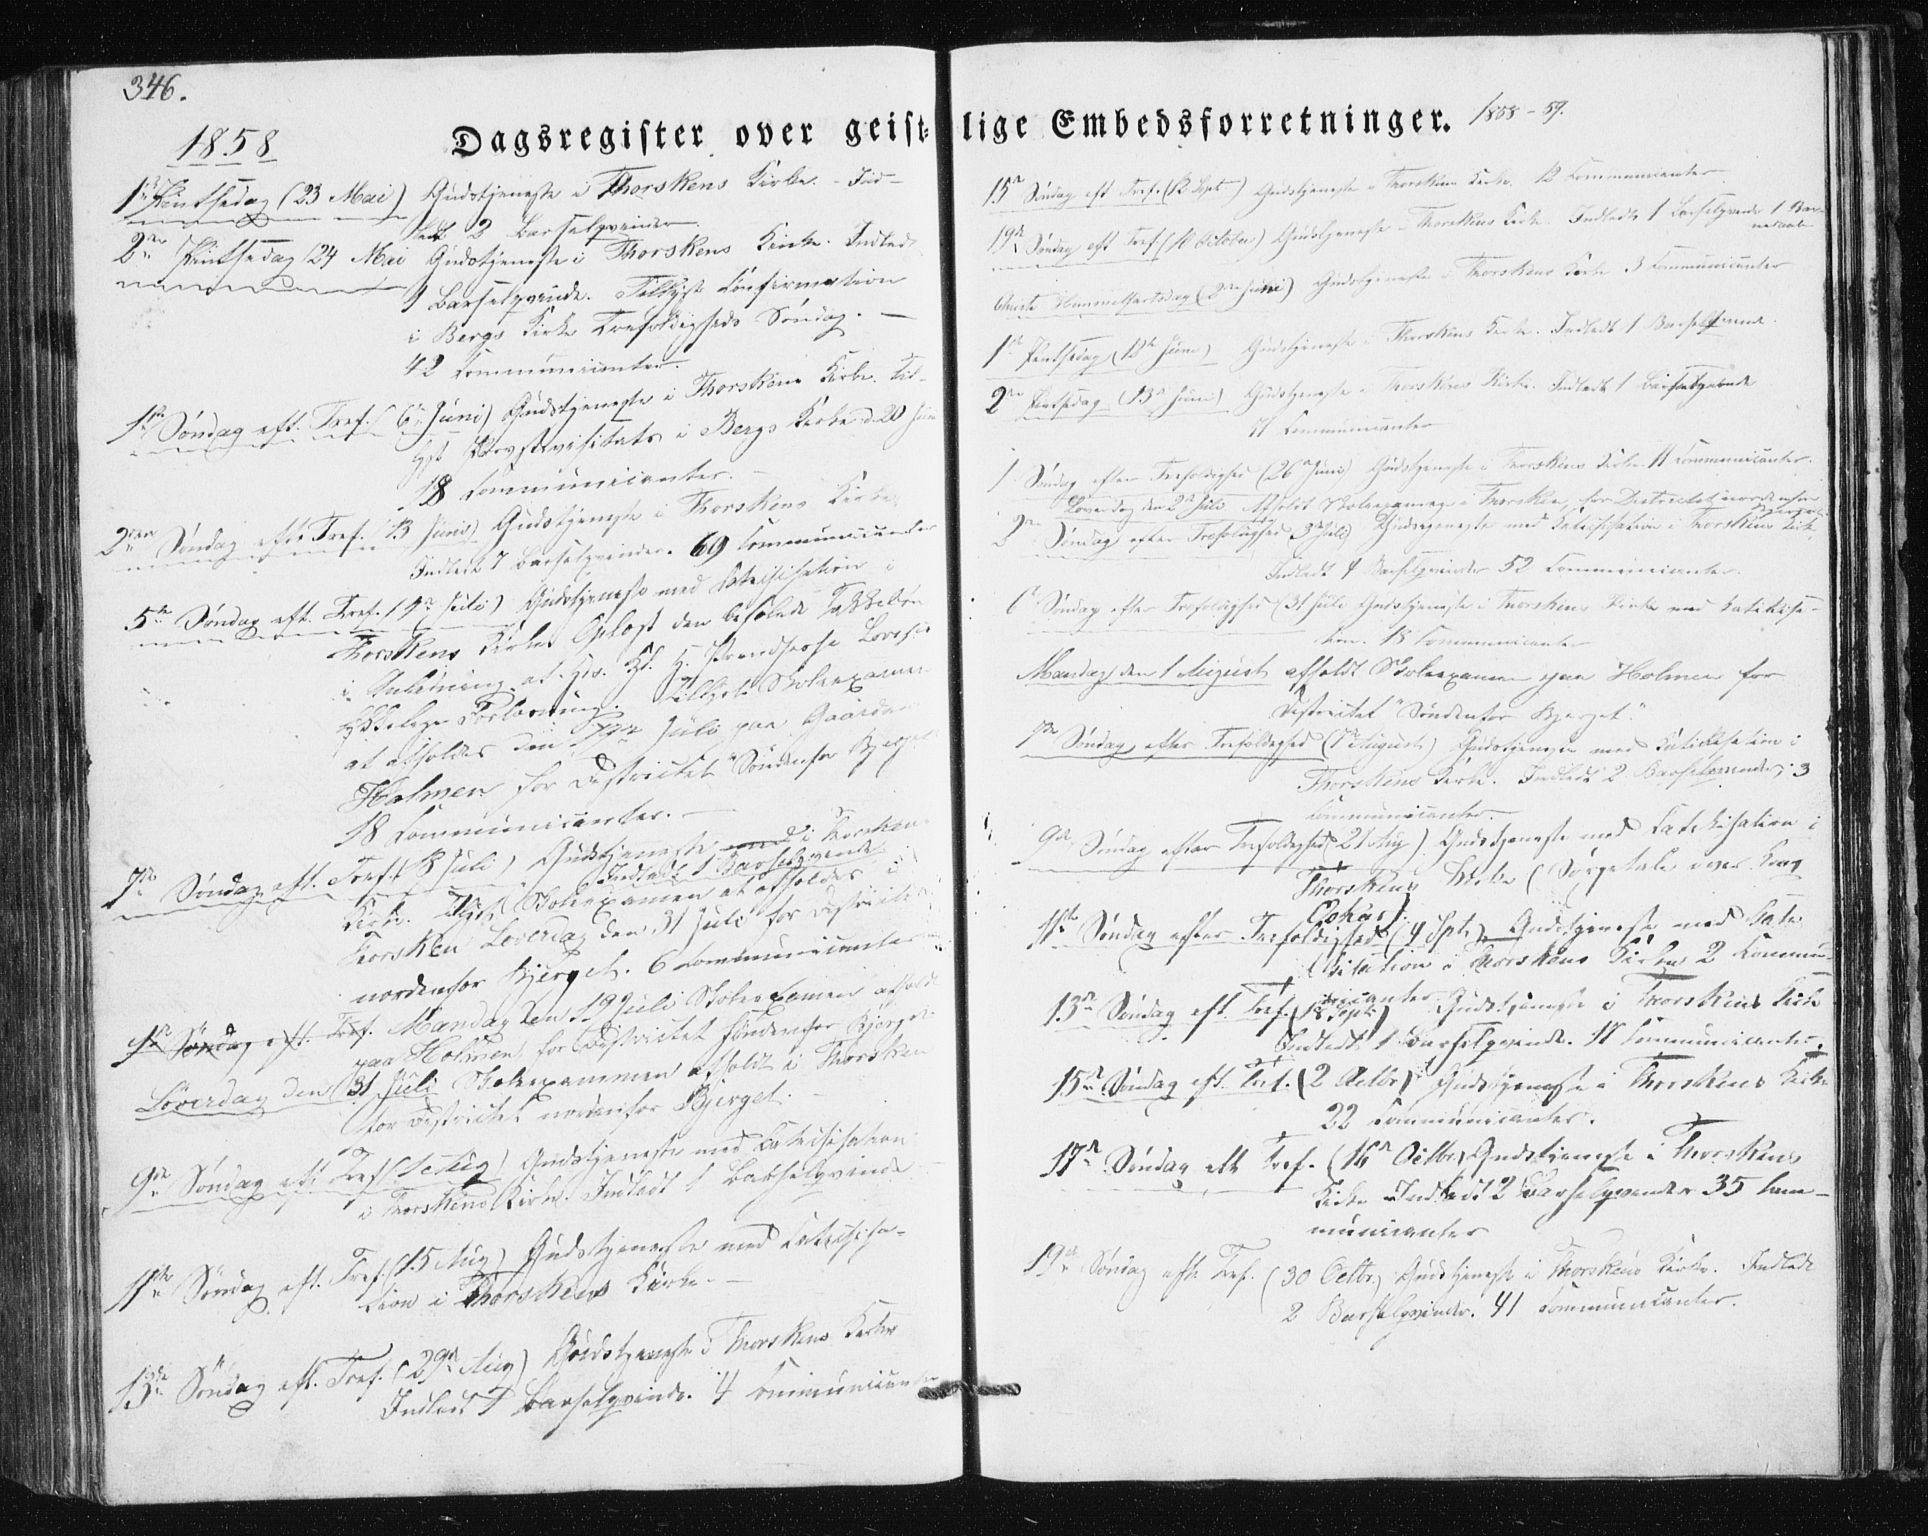 346.
1858
Dagsregister over geist-
1ste Pintsedag (23 Mai) Gudstjeneste i Thorskens Kirke. - Ind-
ledt 2 Barselqvinder.
2den Pintsedag (24 Mai Gudstjeneste i Thorskens Kirke. Indledt
1 Barselqvinde. Tillyst Confirmation
i Bergs Kirke Trefoldigheds Søndag. —
42 Communicanter.
1ste Søndag eft. Tref. (6te Juni) Gudstjeneste i Thorskens Kirke. Til-
lyst Provstevisitats i Bergs Kirke d. 20 Juni
18 Communicanter. —
2den Søndag eft. Tref. (13 Junii) Gudstjeneste i Thorskens Kirke.
Indledt 7 Barselqvinder. 69 Communicanter
5te Søndag eft. Tref. (4de Juli) Gudstjeneste med Katechisation i
Thorskens Kirke. Oplæst den befalede Takkebøn
i Anledning af Hds. Kl. H. Prindsesse Lovises
lykkelige Forløsning. Tillyst Skoleexamen
at afholdes den Juli paa Gaarden
Holmen for Districtet "Søndenfor Bjerget
18 Communicanter. —
7de Søndag eft. Tref. (18 Juli) Gudstjeneste med i Thorskens
Indledt 1 Barselqvinde
Kirke. Tillyst Skoleexamen at afholdes i
Thorsken Løverdag den 31 Juli for Districtet
nordenfor Bjerget. 6 Communicanter
Søndag eft. Tref. Mandag den 19 Juli Skoleexamen afholdt
paa Holmen for Districtet søndenfor Bjerget
Løverdag den 31 Juli Skoleexammen afholdt i Thorsken
for Districtet nordenfor Bjerget. —
9de Søndag eft. Tref. (1 Aug) Gudstjeneste med Catechisation
i Thorskens Kirke. Indledt 1 Barselqvinde
11te Søndag eft. Tref. (15 Aug) Gudstjeneste med Catechisa-
tion i Thorskens Kirke. —
13de Søndag eft. Tref. (29de Aug) Gudstjeneste i Thorskens Kirke
Indledt 1 Barselqvinde. 4 Communicanter
lige Embedsforretninger. 1858-59.
15de Søndag eft Tref. (12 Sept) Gudstjeneste i Thorskens Kirke. 12 Communicanter.
19de Søndag eft Tref. (10 October) Gudstjeneste i Thorskens Kirke. Indledt 1 Barselqvinde 1 Bar-
Christi Himmelfartsdag (2den Juni) Gudstjeneste i Thorskens Kirke 3 Communicanter
1ste Pintsedag (12te Juni) Gudstjeneste i Thorskens Kirke. Indledt 1 Barselqvinde.
2den Pintsedag (13de Juni) Gudstjeneste i Thorskens Kirke. Indledt 1 Barselqvinde
17 Communicanter
1 Søndag efter Trefoldighed (26de Juni) Gudstjeneste i Thorskens Kirke. 11 Communicanter.
Løverdag den 2den Juli Afholdt Skoleexamen i Thorsken for Districtet nordenfor
Bjerget.
2den Søndag efter Trefoldighed 3die Juli) Gudstjeneste med Catechisation i Thorskens Kirke.
Indledt 4 Barselqvinder 52 Communicanter.
6te Søndag efter Trefoldighed (31 Juli Gudstjeneste i Thorskens Kirke med Katechisa-
tion. 18 Communicanter
Mandag den 1 August afholdt Skoleexamen paa Holmen for
Districtet "Søndenfor Bjerget."
7de Søndag efter Trefoldighed (7de August) Gudstjeneste med Catechisation i
Thorskens Kirke. Indledt 2 Barselqvinder. 3
Communicanter.
9de Søndag efter Trefoldighed (21 Aug) Gudstjeneste med Catechisation i
Thorskens Kirke (Sørgetale over Kong
Oskar).
11te Søndag efter Trefoldighed (4 Sept) Gudstjeneste med Cate-
kisation i Thorskens Kirke 2 Commu-
nicanter
13de Søndag eft. Tref. (18 Sept) Gudstjeneste i Thorskens Kirke
Indledt 1 Barselqvinde. 11 Communicanter.
15de Søndag eft. Tref. (2 Octbr) Gudstjeneste i Thorskens Kirke
22 Communicanter.
17de Søndag eft Tref. (16de Octbr) Gudstjeneste i Thorskens
Kirke Indledt 2 Barselqvinder 35 Com-
municanter
19de Søndag eft Tref. (30 Octbr.) Gudstjeneste i Thorskens Kirke. Indledt
2 Barselqvinder. 41 Communicanter.